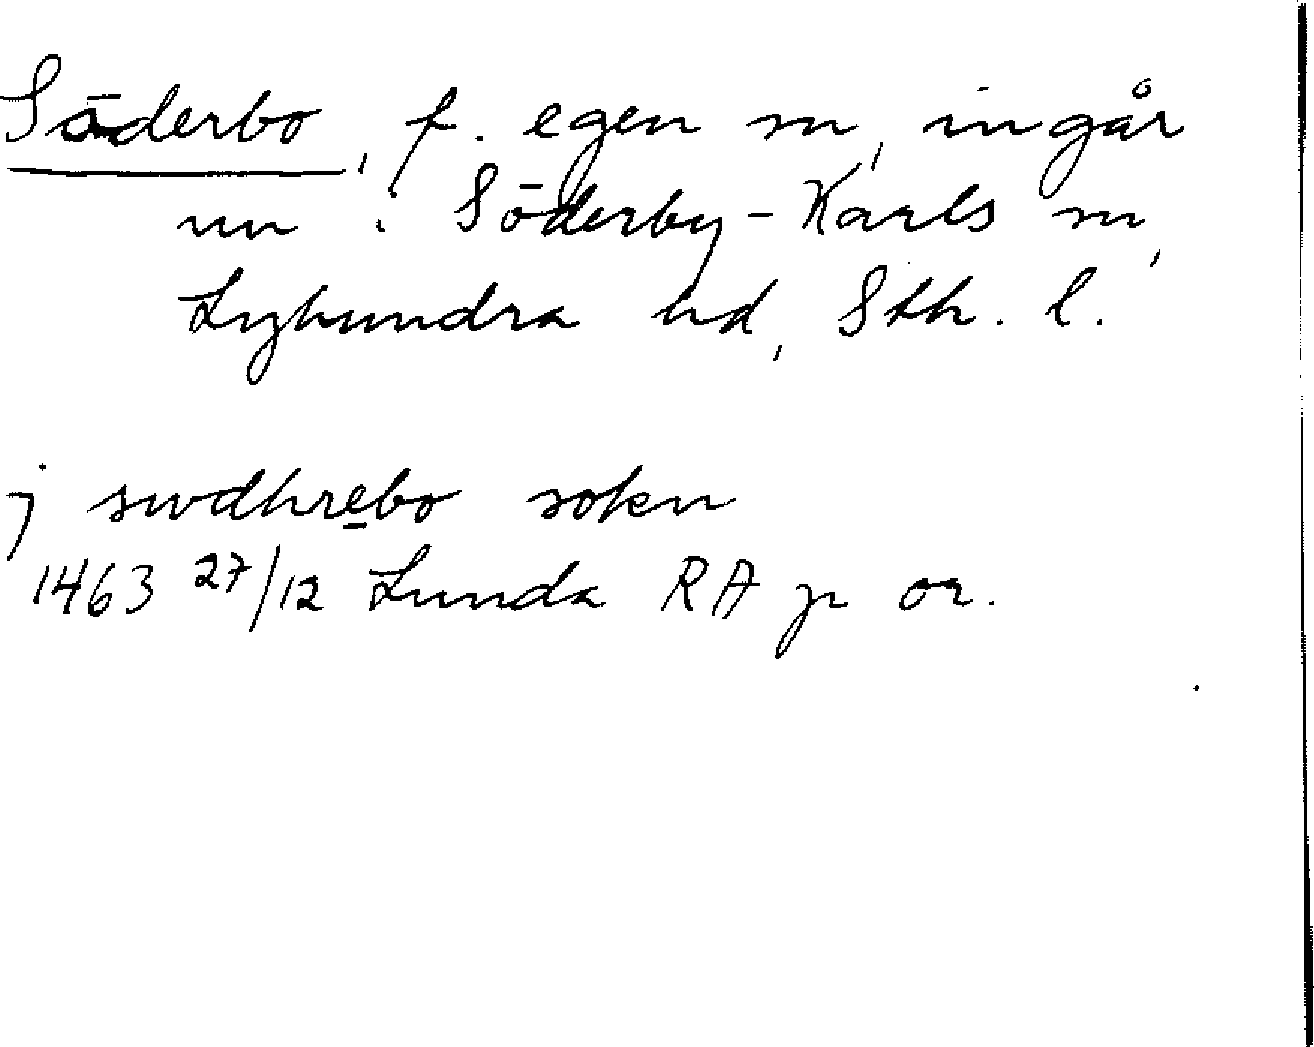 Söderbo, f. egen sn, ingår
nu i Söderby-Karls sn,
Lyhundra hd, Sth. l.
j swdhrebo sokn
1463 27/12 Lunda RA p or.